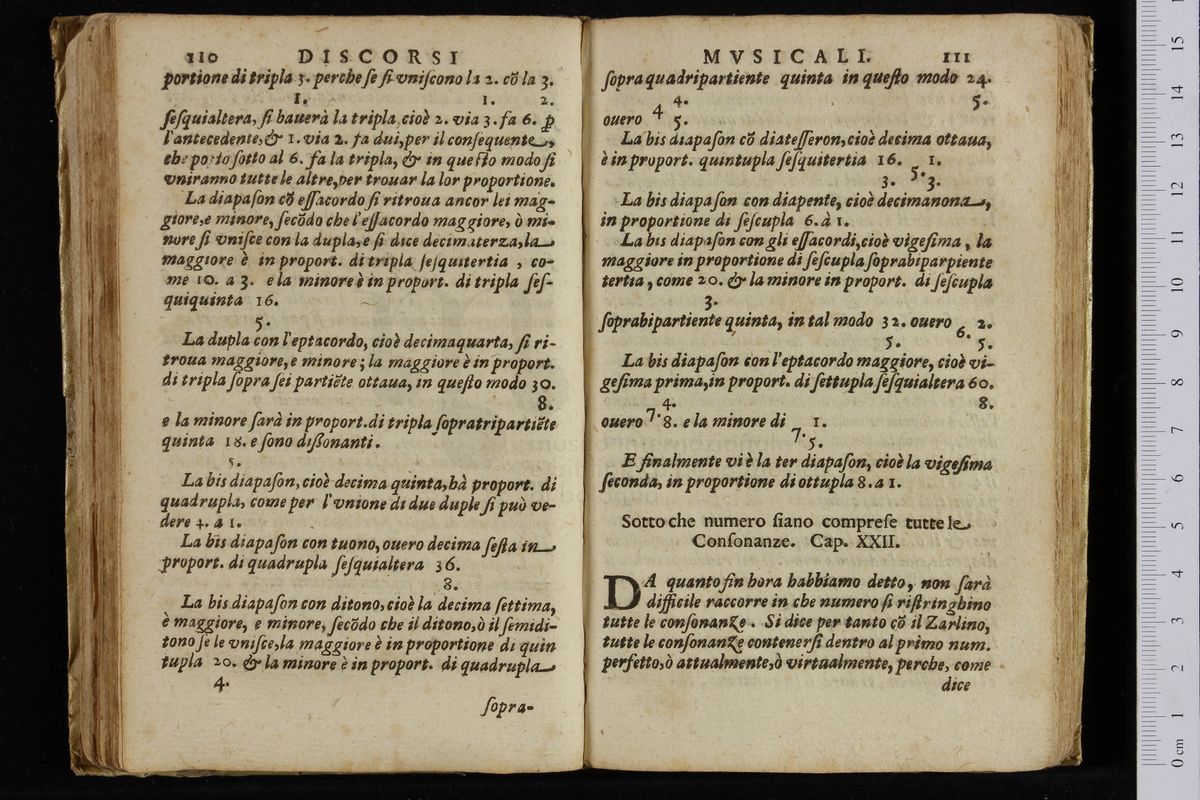 110 DISCORSI
portione di tripla 3. perche ſe ſi vniſcono la 2. cõ la 3.
1. 1. 2.
ſeſquialtera, ſi hauerà la tripla, cioè 2. via 3. fa 6. ꝑ
l'antecedente, & 1. via 2. fa dui, per il conſequente,
che poſto ſotto al 6. fa la tripla, & in queſto modo ſi
vniranno tutte le altre, per trouar la lor proportione.
La diapaſon cõ eſſacordo ſi ritroua ancor lei mag-
giore, e minore, ſecõdo che l'eſſacordo maggiore, ò mi-
nore ſi vniſce con la dupla, e ſi dice decimaterza, la
maggiore è in proport. di tripla ſeſquitertia, co-
me 10. a 3. e la minore è in proport. di tripla ſeſ-
quiquinta 16.
5.
La dupla con l'eptacordo, cioè decimaquarta, ſi ri-
troua maggiore, e minore; la maggiore è in proport.
di tripla ſopra ſei partiẽte ottaua, in queſto modo 30.
8.
e la minore ſarà in proport. di tripla ſopratripartiẽte
quinta 18. e ſono diſſonanti.
5.
La bis diapaſon, cioè decima quinta, hà proport. di
quadrupla, come per l'vnione di due duple ſi può ve-
dere 4. a 1.
La bis diapaſon con tuono, ouero decima ſeſta in
proport. di quadrupla ſeſquialtera 36.
8.
La bis diapaſon con ditono, cioè la decima ſettima,
è maggiore, e minore, ſecõdo che il ditono, ò il ſemidi-
tono ſe le vniſce, la maggiore è in proportione di quin
tupla 20. & la minore è in proport. di quadrupla
4.
ſopra-
MVSICALI. 111
ſopraquadripartiente quinta in queſto modo 24.
4. 5.
ouero 4 5.
La bis diapaſon cõ diateſſeron, cioè decima ottaua,
è in proport. quintupla ſeſquitertia 16. 1.
3. 5. 3.
La bis diapaſon con diapente, cioè decimanona,
in proportione di ſeſcupla 6. à 1.
La bis diapaſon con gli eſſacordi, cioè vigeſima, la
maggiore in proportione di ſeſcupla ſoprabiparpiente
tertia, come 20. & la minore in proport. di ſeſcupla
3.
ſoprabipartiente quinta, in tal modo 32. ouero 6. 2.
5. 5.
La bis diapaſon con l'eptacordo maggiore, cioè vi-
geſima prima, in proport. di ſettupla ſeſquialtera 60.
4. 8.
ouero 7. 8. e la minore di 1.
7. 5.
E finalmente vi è la ter diapaſon, cioè la vigeſima
ſeconda, in proportione di ottupla 8. a 1.
Sotto che numero ſiano compreſe tutte le
Conſonanze. Cap. XXII.
DA quanto ſin hora habbiamo detto, non ſarà
difficile raccorre in che numero ſi riſtringhino
tutte le conſonanze. Si dice per tanto cõ il Zarlino,
tutte le conſonanze contenerſi dentro al primo num.
perfetto, ò attualmente, ò virtualmente, perche, come
dice
0 cm 1 2 3 4 5 6 7 8 9 10 11 12 13 14 15